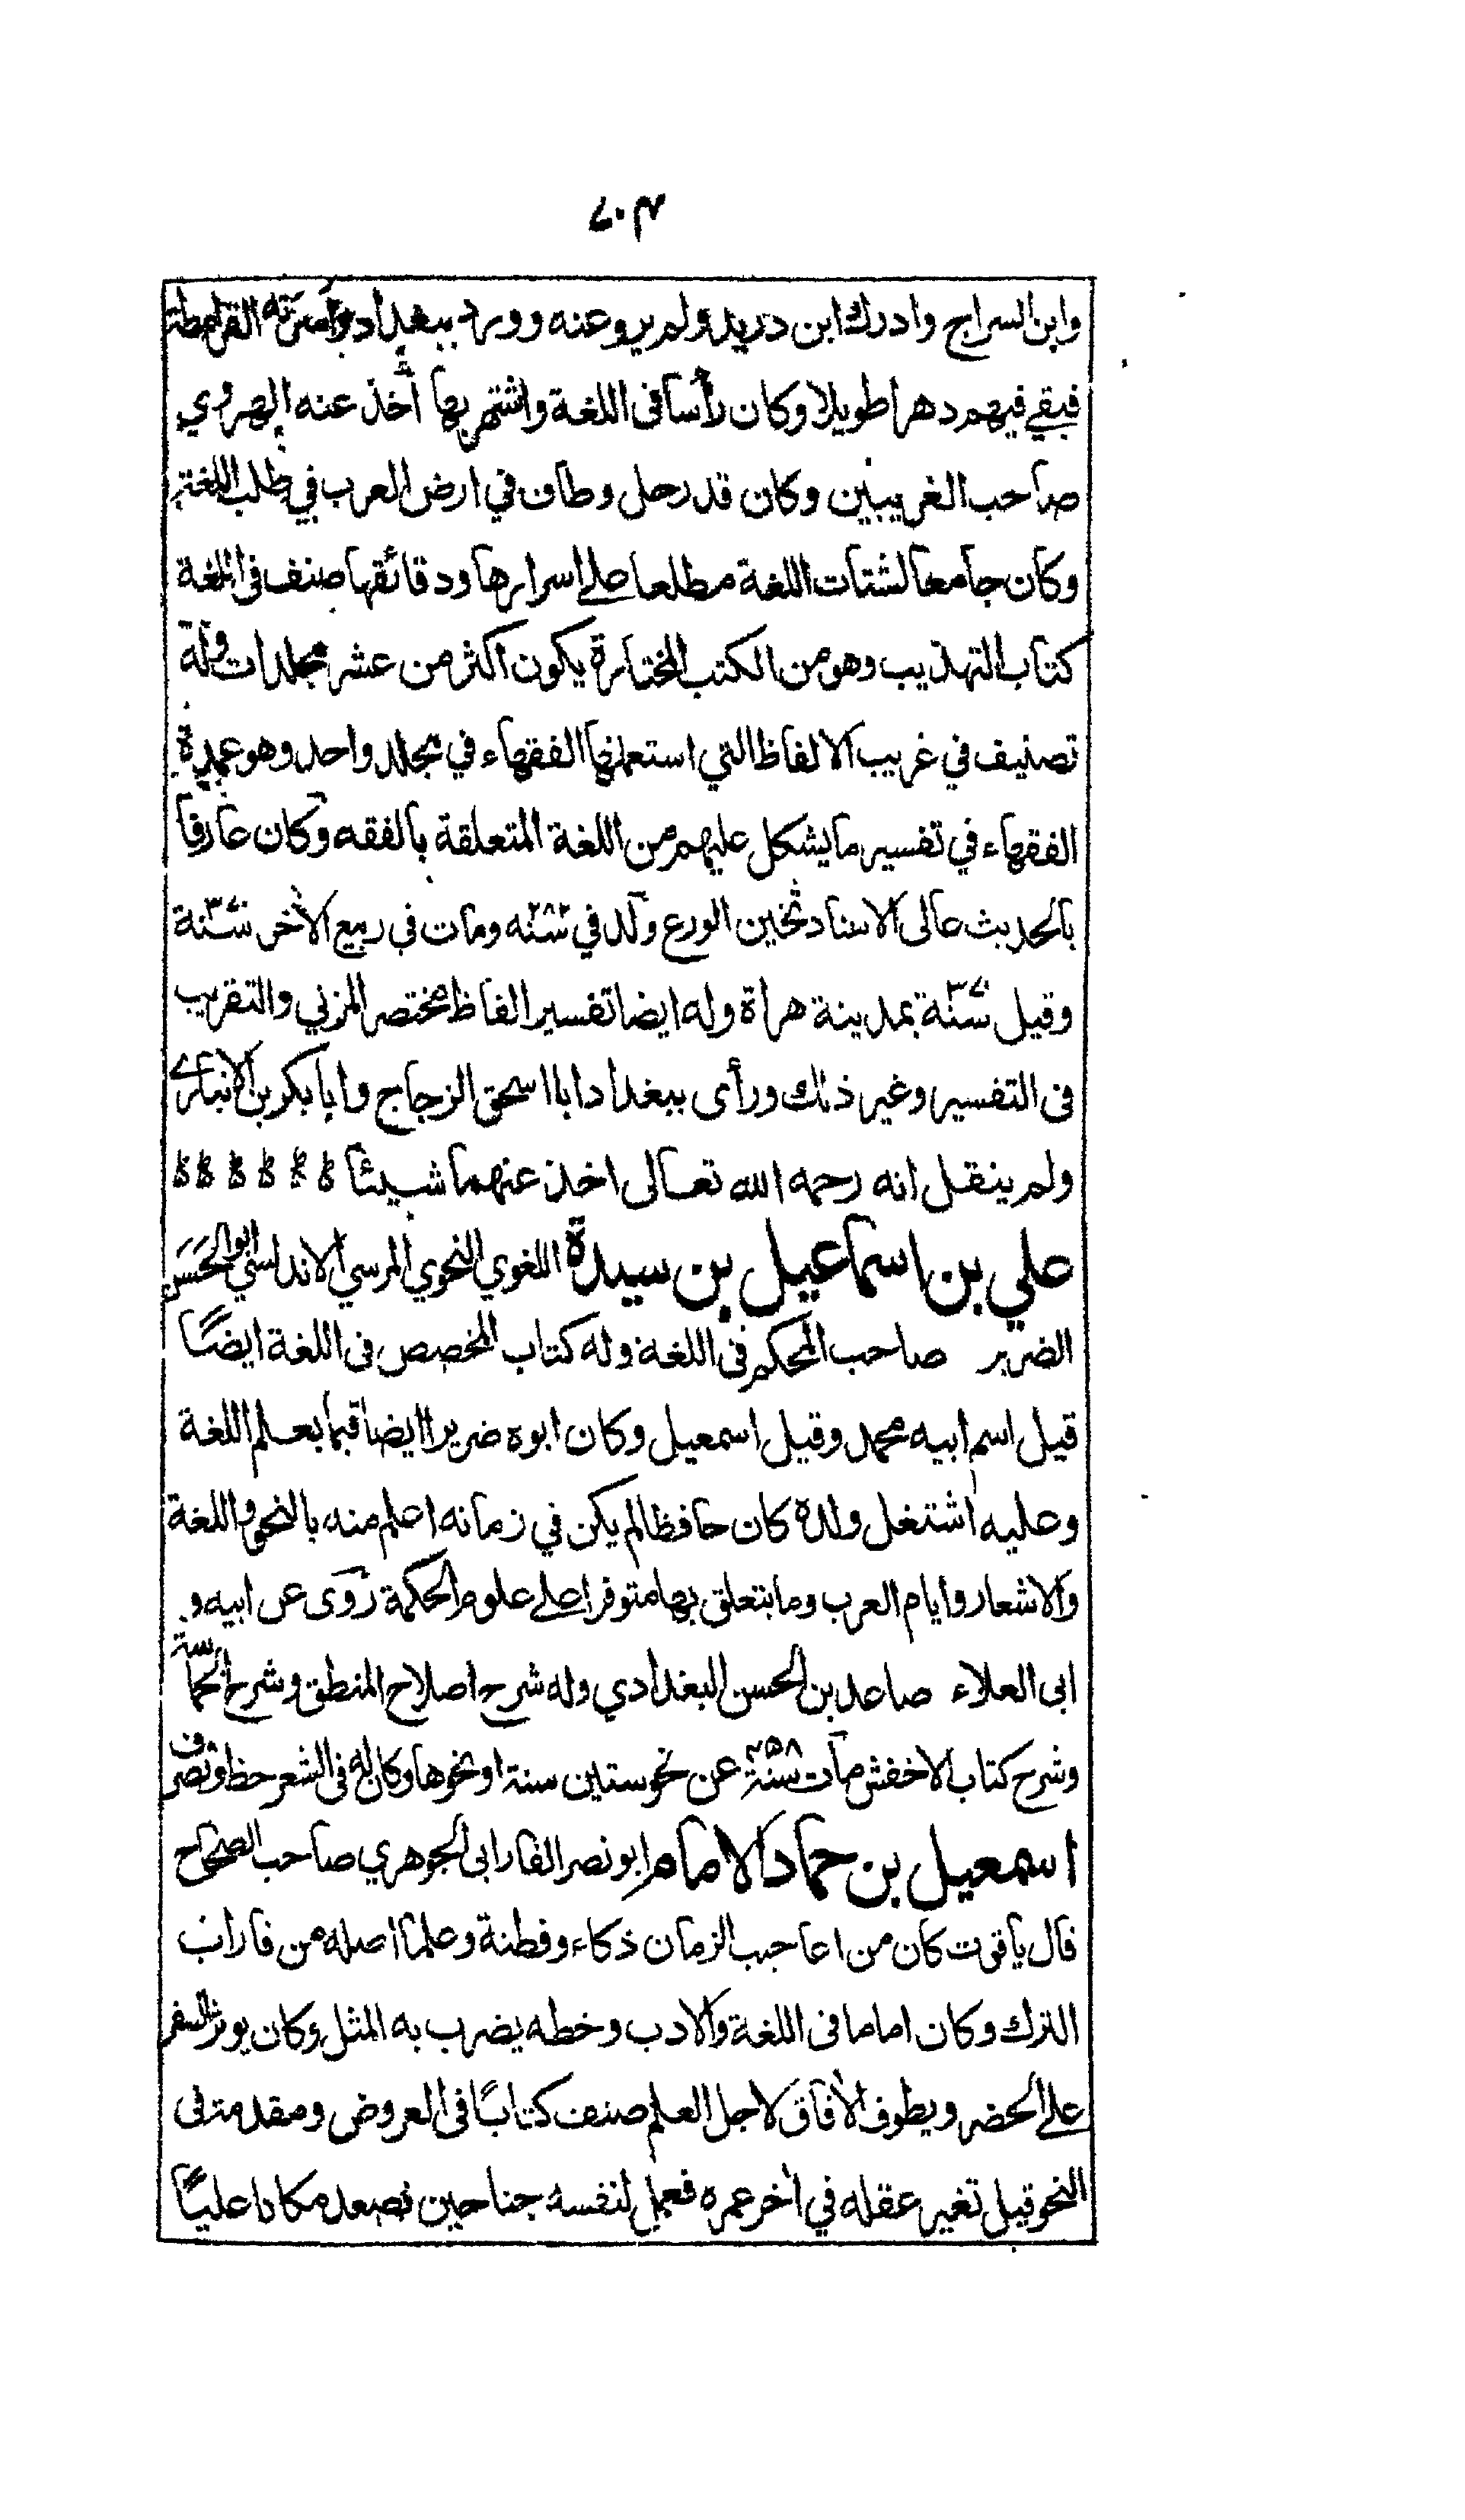 وابن السراج وادرك ابن دريد ولم يرو عنه وورد ببغداد واسرته القرامطة
فبقي فيهم دهرا طويلا وكان رأسا فى اللغة واشتهر بها أخذ عنه الهروي
صاحب الغريبين وكان قد رحل وطاف في ارض العرب في طلب اللغة
وكان جامعا لشتات اللغة مطلعا على اسرارها ودقائقها صنف فى اللغة
كتاب التهذيب وهو من الكتب المختارة يكون اكثر من عشر مجلدات وله
تصنيف في غريب الالفاظ التي استعملها الفقهاء في مجلد واحد وهو عمدة
الفقهاء في تفسير ما يشكل عليهم من اللغة المتعلقة بالفقه وكان عارفا
بالحديث عالى الاسناد ثخين الورع ولد في سنه ٢٨٢ ومات فى ربيع الأخر سنة ٣٧٠
وقيل سنة ٣٧١ بمدينة هراة وله ايضا تفسير الفاظ مختصر المزني والتقريب
فى التفسير وغير ذلك ورأى ببغداد ابا اسحق الزجاج وابا بكر بن الانباري
ولم ينقل انه رحمه الله تعالى اخذ عنهما شيئا
علي بن اسماعيل بن سيدة اللغوي النحوي المرسي الاندلسي ابو الحسن
الضرير صاحب المحكم فى اللغة وله كتاب المخصص فى اللغة ايضًا
قيل اسم ابيه محمد وقيل اسمعيل وكان ابوه ضريرا ايضا قيما بعلم اللغة
وعليه اشتغل ولده كان حافظا لم يكن في زمانه اعلم منه بالنحو واللغة
والاشعار وايام العرب وما يتعلق بها متوفرا على علوم الحكمة روى عن ابيه و
ابى العلاء صاعد بن الحسن البغدادي وله شرح اصلاح المنطق وشرح الحماسة
وشرح كتاب الاخفش مات سنة ٤٥٨ عن نحو ستين سنة او نحوها وكان له فى الشعر حظ وتصرف
اسمعيل بن حماد الامام ابو نصر الفارابى الجوهري صاحب الصحاح
قال ياقوت كان من اعاجيب الزمان ذكاء وفطنة وعلما اصله من فاراب
الترك وكان اماما فى اللغة والادب وخطه يضرب به المثل وكان يوثر السفر
على الحضر ويطوف الأفاق لاجل العلم صنف كتابًا فى العروض ومقدمة فى
النحو قيل تغير عقله في أخر عمره فعمل لنفسه جناحين فصعد مكانا عليًا